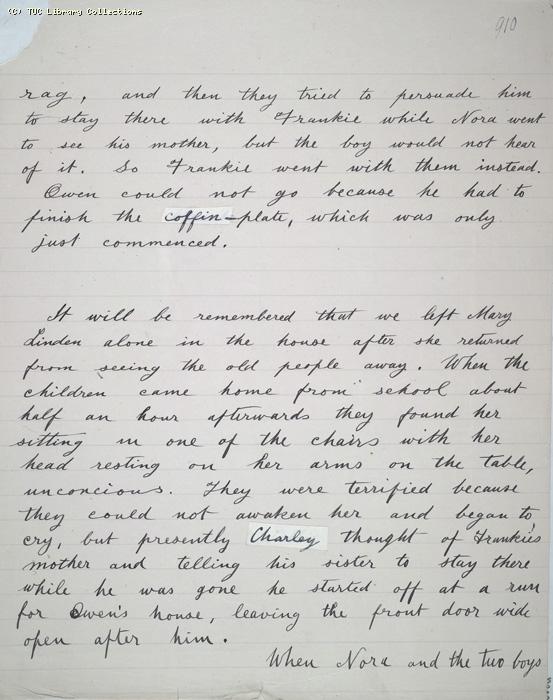 (C) TUC Library Collections
910
rag, and then they tried to persuade him
to stay there with Frankie while Nora went
to see his mother, but the boy would not hear
of it. So Frankie went with them instead.
Owen could not go because he had to
finish the coffin-plate, which was only
just commenced.
It will be remembered that we left Mary
Linden alone in the house after she returned
from seeing the old people away. When the
children came home from school about
half an hour afterwards they found her
sitting in one of the chairs with her
head resting on her arms on the table,
unconcious. They were terrified because
they could not awaken her and began to
cry, but presently Charley thought of Frankie's
mother and telling his sister to stay there
while he was gone he started off at a run
for Owen's house, leaving the front door wide
open after him.
When Nora and the two boys